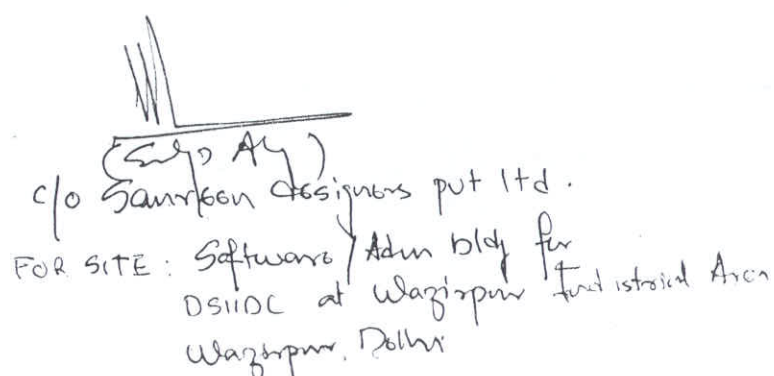 c/o designers pvt ltd.
FOR SITE: Software/Admn bldg for
DSIIDC at Wazirpur Industrial Area
Wazirpur, Delhi